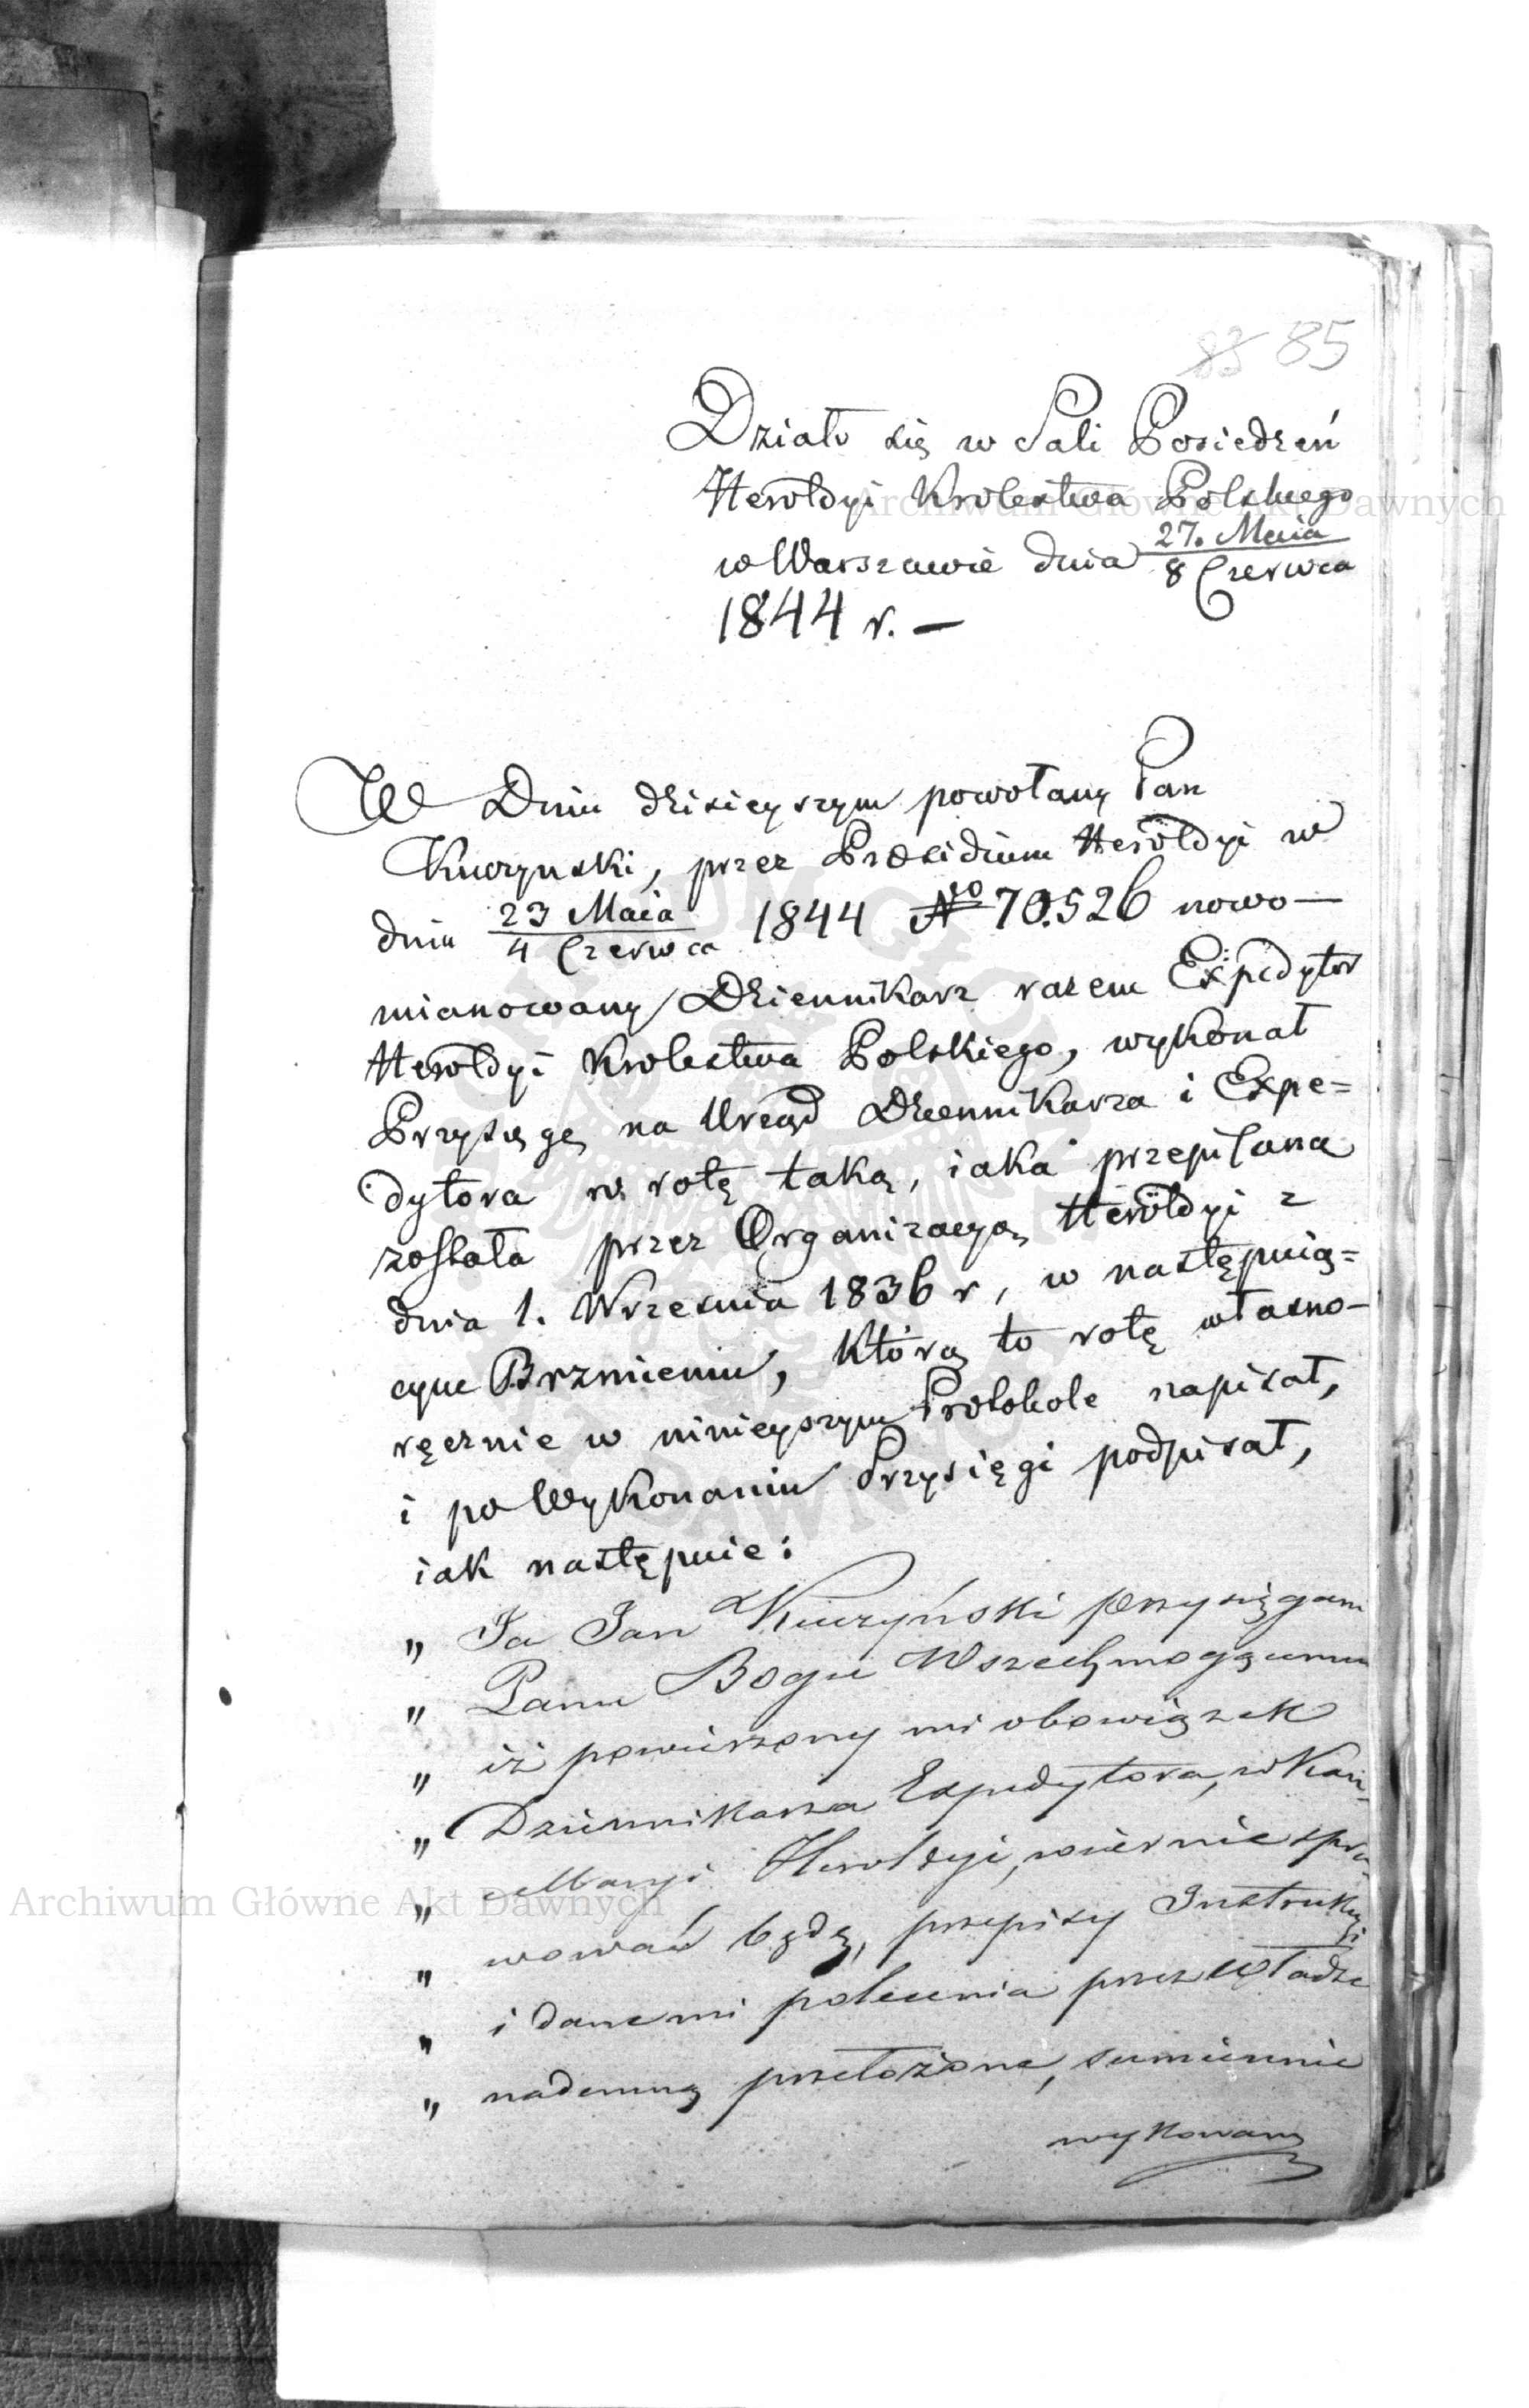 83 85
Działo się w Sali Posiedzeń
Heroldyi Krolestwa Polskiego
w Warszawie dnia 27. Maia / 8 Czerwca
1844 r. —
W Dniu dzisieyszym powołany Pan
Kuczynski, przez Prezidium Heroldyi w
dniu 23 Maia / 4 Czerwca 1844 No 70.526 nowo—
mianowany Dziennikarz razem Expedytor
Heroldyi Krolestwa Polskiego, wykonał
Przysięgę na Urząd Dziennikarza i Expe=
dytora w rotę taką, iaka przepisana
została przez Organizacyą Heroldyi z
dnia 1. Września 1836 r, w następuią=
cym Brzmieniu, którą to rotę własno—
ręcznie w ninieyszym Protokole napisał,
i po Wykonaniu Przysięgi podpisał,
iak następuie:
„ Ja Jan Kuczyński przysięgam
„ Panu Bogu Wszechmogącemu
„ iż powierzony mi obowiązek
„ Dziennikarza Expedytora, w Kan-
„ cellaryi Heroldyi, wiernie spra-
„ wować będę, przepisy Instrukcyi
„ i dane mi polecenia przez Władze
„ nademną przełożone, sumiennie
wykonam
Archiwum Główne Akt Dawnych
Archiwum Główne Akt Dawnych
ARCHIWUM GŁÓWNE AKT DAWNYCH